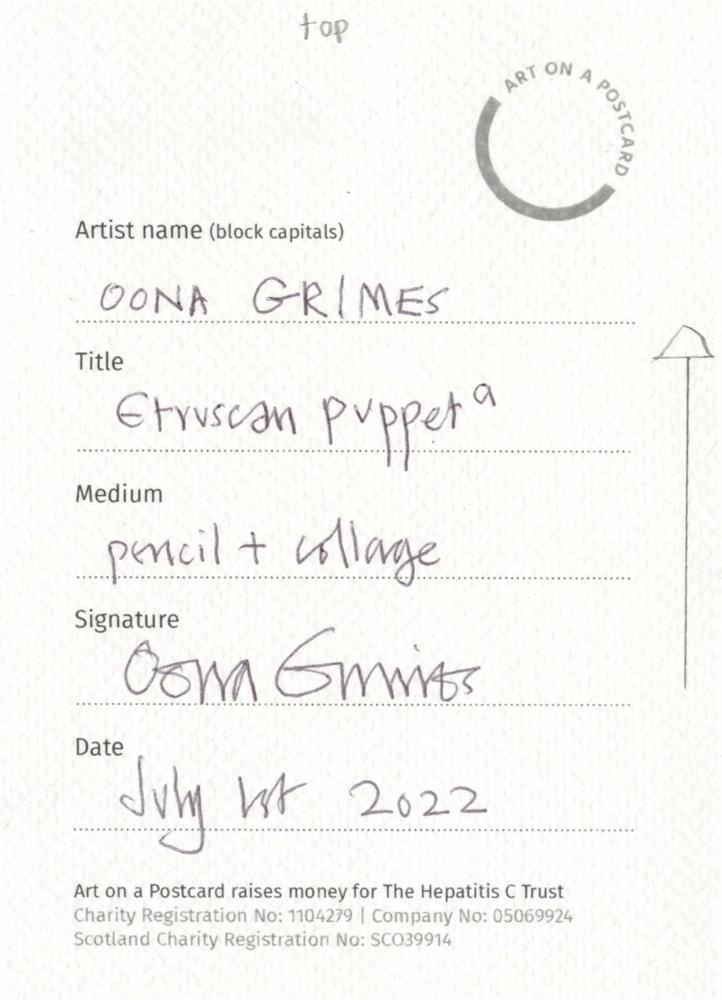 top
ART ON A POSTCARD
Artist name (block capitals)
OONA GRIMES
Title
Etruscan puppet a
Medium
pencil + collage
Signature
Oona Grimes
Date
July 1st 2022
Art on a Postcard raises money for The Hepatitis C Trust
Charity Registration No: 1104279 | Company No: 05069924
Scotland Charity Registration No: SCO39914